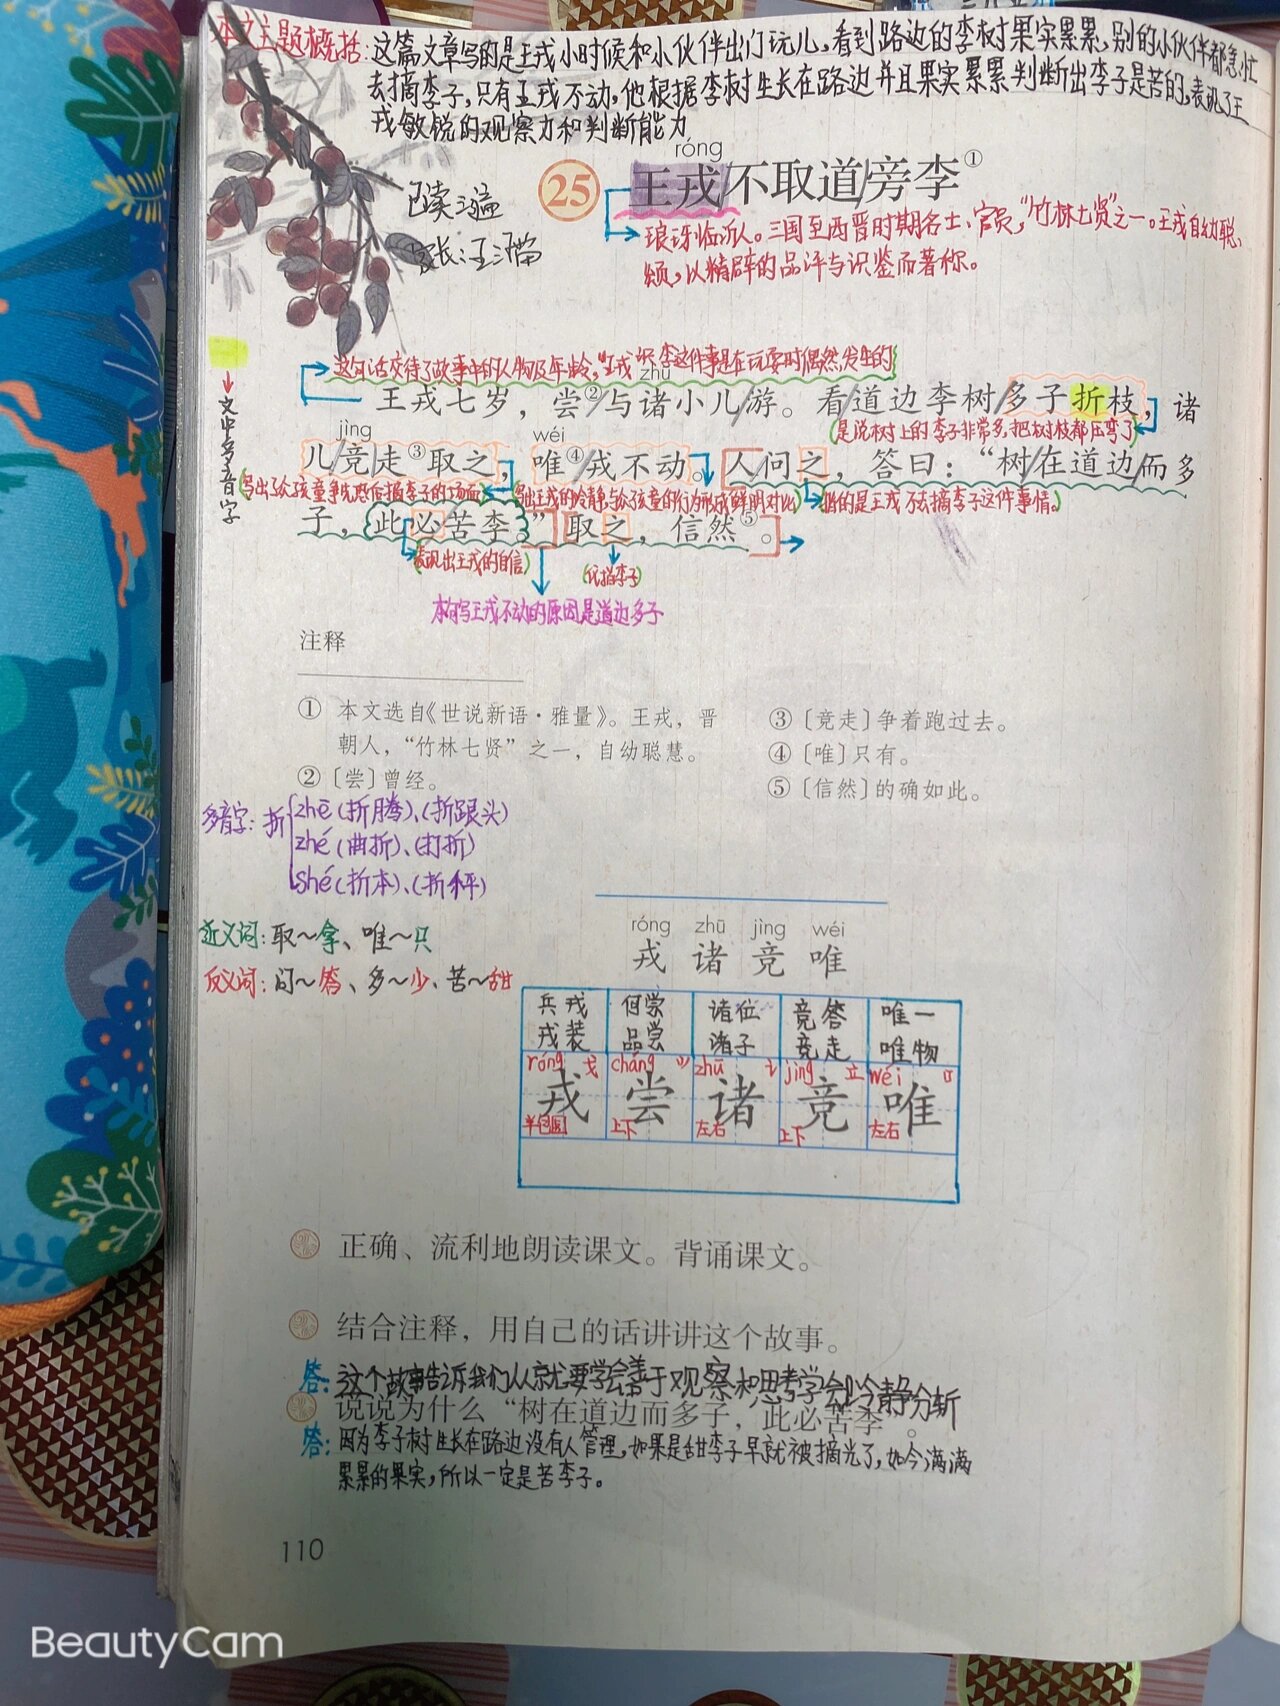 本文主题概括:这篇文章写的是王戎小时候和小伙伴出门玩儿,看到路边的李树果实累累,别的小伙伴都急忙
去摘李子,只有王戎不动,他根据李树生长在路边并且果实累累判断出李子是苦的,表现了王
戎敏锐的观察力和判断能力
róng
25 王戎/不取道/旁李①
已读
家长:王
琅玡临沂人。三国至西晋时期名士、官员,“竹林七贤”之一。王戎自幼聪
颖,以精辟的品评与识鉴而著称。
这句话交待了故事中的人物及年龄,“王戎识李这件事是在玩耍时偶然发生的
zhū
王戎七岁,尝②/与诸小儿/游。看/道边李树/多子折枝,诸
(是说树上的李子非常多,把树枝都压弯了)
jìng wéi
儿/竞走③取之,唯④戎不动。人问之,答曰:“树/在道边/而多
写出了众孩童争先恐后摘李子的场面
写出王戎的冷静与众孩童的行为形成鲜明对比
指的是王戎不去摘李子这件事情。
子,此必苦李。”取之,信然⑤。
(表现出王戎的自信)
(代指李子)
本句写王戎不动的原因是道边多子
文中多音字
注释
① 本文选自《世说新语·雅量》。王戎,晋
朝人,“竹林七贤”之一,自幼聪慧。
② 〔尝〕曾经。
③ 〔竞走〕争着跑过去。
④ 〔唯〕只有。
⑤ 〔信然〕的确如此。
多音字:折
zhē(折腾)、(折跟头)
zhé(曲折)、(打折)
shé(折本)、(折秤)
近义词:取~拿、唯~只
反义词:问~答、多~少、苦~甜
róng zhū jìng wéi
戎 诸 竞 唯
兵戎 何尝 诸位 竞答 唯一
戎装 品尝 诸子 竞走 唯物
róng 戈 cháng zhū 讠 jìng 立 wéi 口
戎 尝 诸 竞 唯
半包围 上下 左右 上下 左右
正确、流利地朗读课文。背诵课文。
结合注释,用自己的话讲讲这个故事。
答:这个故事告诉我们从就要学会善于观察和思考学会冷静分析
说说为什么“树在道边而多子,此必苦李”。
答:因为李子树生长在路边没有人管理,如果是甜李子早就被摘光了,如今满满
累累的果实,所以一定是苦李子。
110
BeautyCam